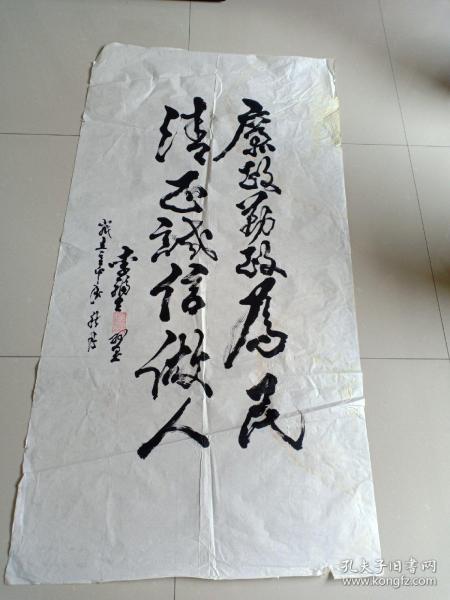 廉政勤政為民
清正誠信做人
孔夫子旧书网
www.kongfz.com